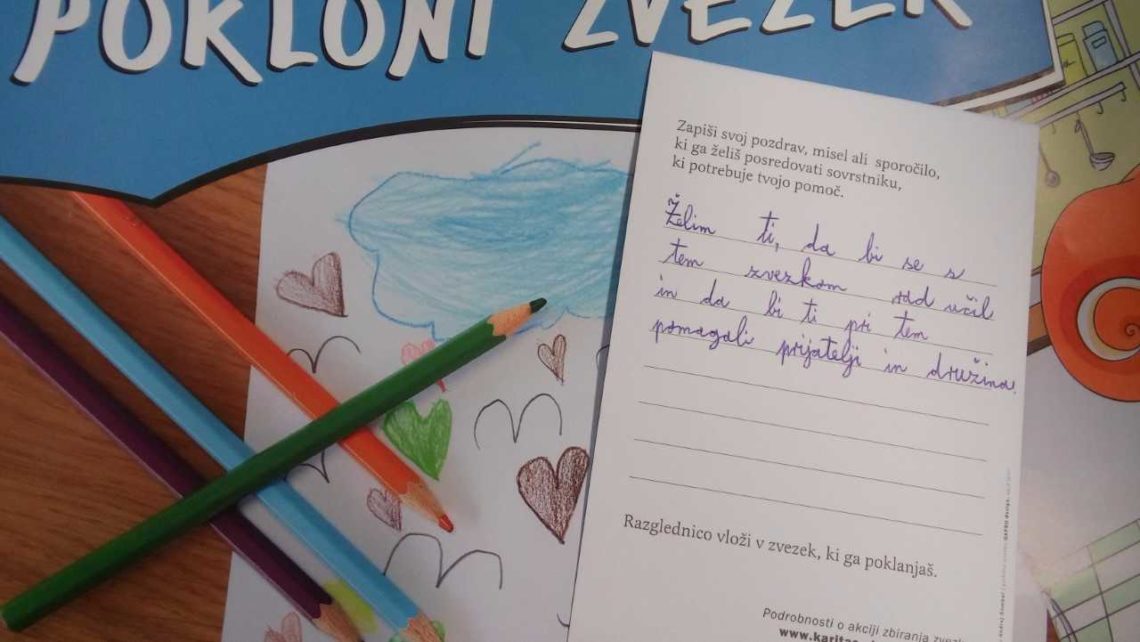 POKLONI ZVEZEK
Zapiši svoj pozdrav, misel ali sporočilo,
ki ga želiš posredovati sovrstniku,
ki potrebuje tvojo pomoč.
Želim ti, da bi se s
tem zvezkom rad učil
in da bi ti pri tem
pomagali prijatelji in družina.
Razglednico vloži v zvezek, ki ga poklanjaš.
Podrobnosti o akciji zbiranja
www.karitas